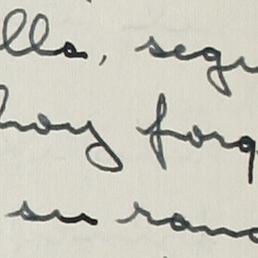 lla, segu
hay forq
su ranc